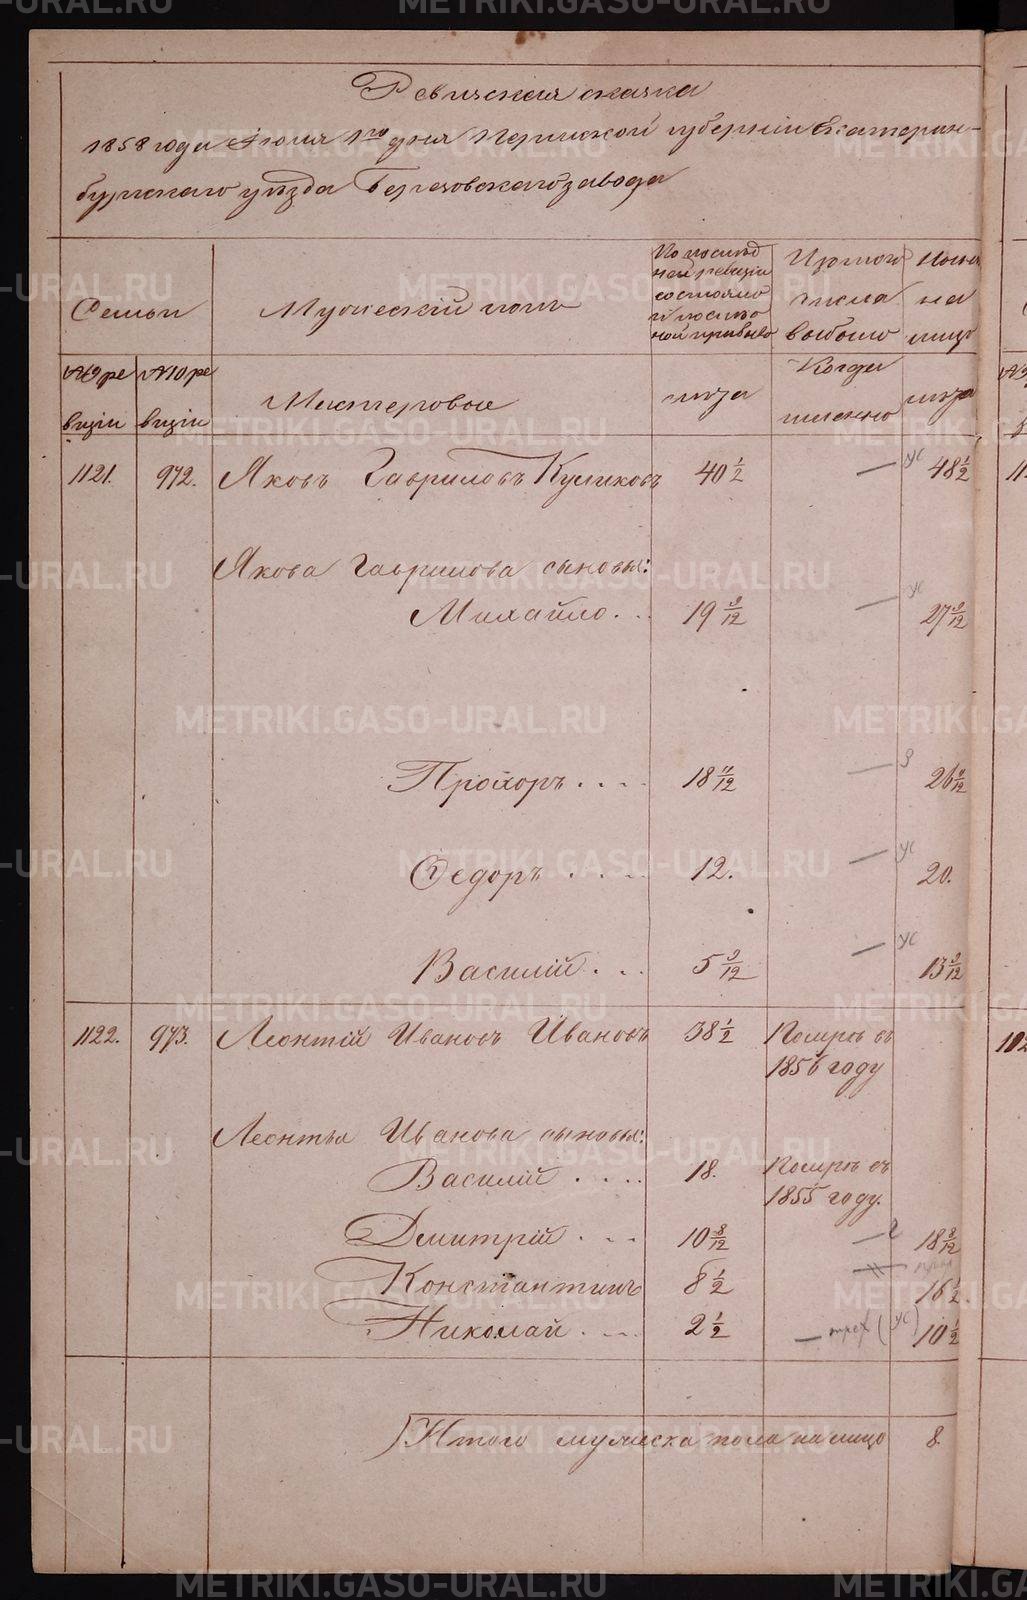 Ревизская сказка
1858 года Июня 1го дня Пермской губерніи Екатерин-
бургскаго уѣзда Березовскаго завода
Семьи
Мужескій полъ
По послѣд
ней ревизіи
состояло
и послѣ
ной прибыло
Изъ того
числа
выбыло
Нынѣ
на
лицо
№ 9 ре
визіи
№ 10 ре
визіи
Мастеровые
лѣта
Когда
именно
лѣта
1121. 972. Яковъ Гавриловъ Куликовъ 40 1/2 — ус 48 1/2
Якова Гаврилова сыновья:
Михайло . . 19 9/12 — ус 27 9/12
Прохоръ . . . . 18 11/12 — 3 26 11/12
Ѳедоръ . . . . 12. — ус 20.
Василій . . . 5 9/12 — ус 13 9/12
1122. 973. Леонтій Ивановъ Ивановъ 38 1/2 Померъ въ
1856 году
Леонтья Иванова сыновья:
Василій . . . . 18. Померъ въ
1855 году.
Дмитрій . . . 10 8/12 — 2 18 8/12
Константинъ 8 1/2 — 16 1/2
Николай . . . 2 1/2 — (ус) 10 1/2
Итого мужеска пола на лицо 8.
METRIKI.GASO-URAL.RU